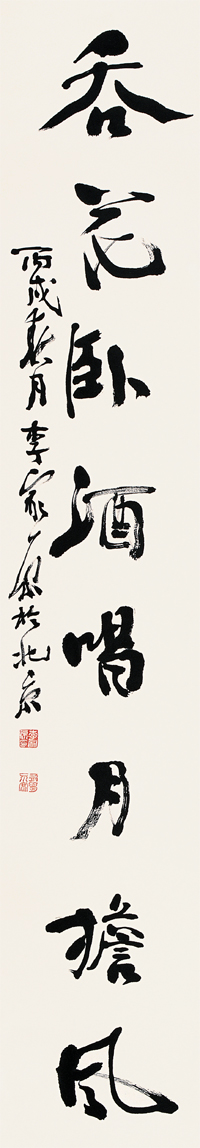 吞花卧酒喝月擔風
丙戌春月李家原於北京